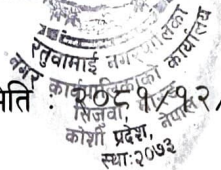 रतुवामाई नगरपालिका
नगर कार्यपालिकाको कार्यालय
मिति : २०८१/१२/
सिजुवा,
कोशी प्रदेश, नेपाल
स्था: २०७३